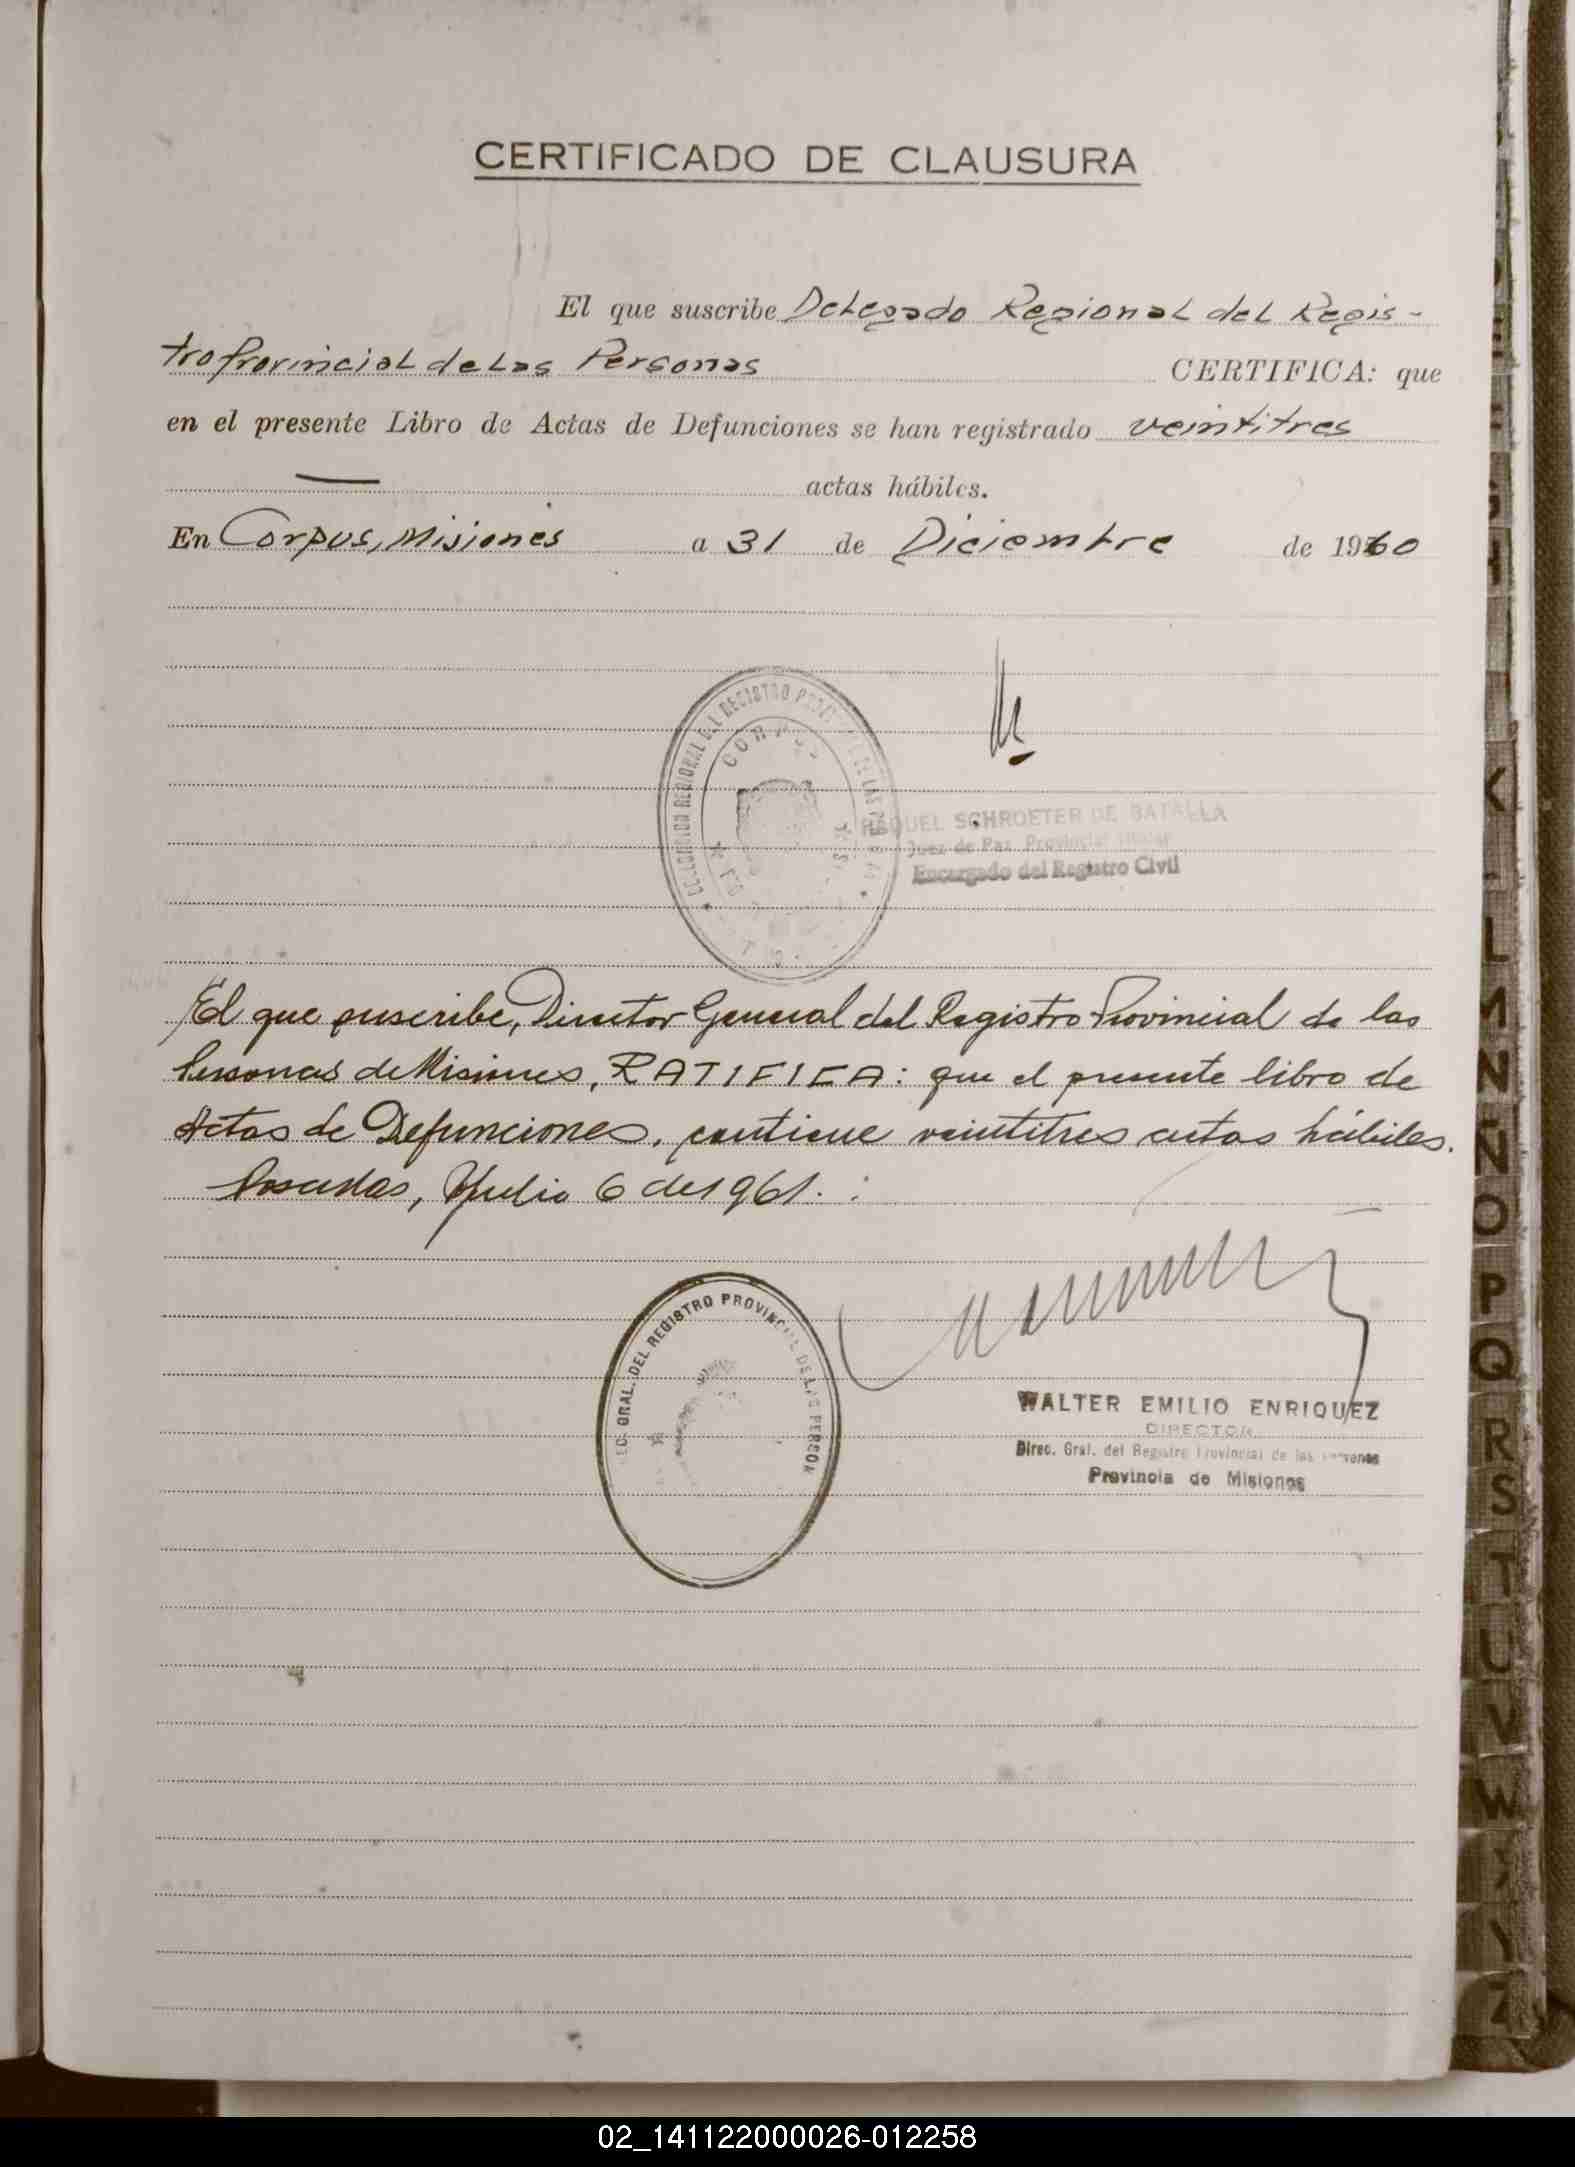 CERTIFICADO DE CLAUSURA
El que suscribe Delegado Regional del Regis-
tro Provincial de las Personas CERTIFICA: que
en el presente Libro de Actas de Defunciones se han registrado veintitres
— actas hábiles.
En Corpus, Misiones a 31 de Diciembre de 1960
DELEGACION REGIONAL DEL REGISTRO PROV DE LAS
CORPUS
RAQUEL SCHROETER DE BATALLA
Juez de Paz Provincial titular
Encargado del Registro Civil
El que suscribe, Director General del Registro Provincial de las
Personas de Misiones, RATIFICA: que el presente libro de
Actas de Defunciones, contiene veintitres actas hábiles.
Posadas, Julio 6 de 1961.
GRAL. DEL REGISTRO PROVINCIAL DE LAS PERSON
WALTER EMILIO ENRIQUEZ
DIRECTOR
Direc. Gral. del Registro Provincial de las Personas
Provincia de Misiones
K
L
M
N
Ñ
O
P
Q
R
S
T
U
V
W
X
Y
Z
02_141122000026-012258